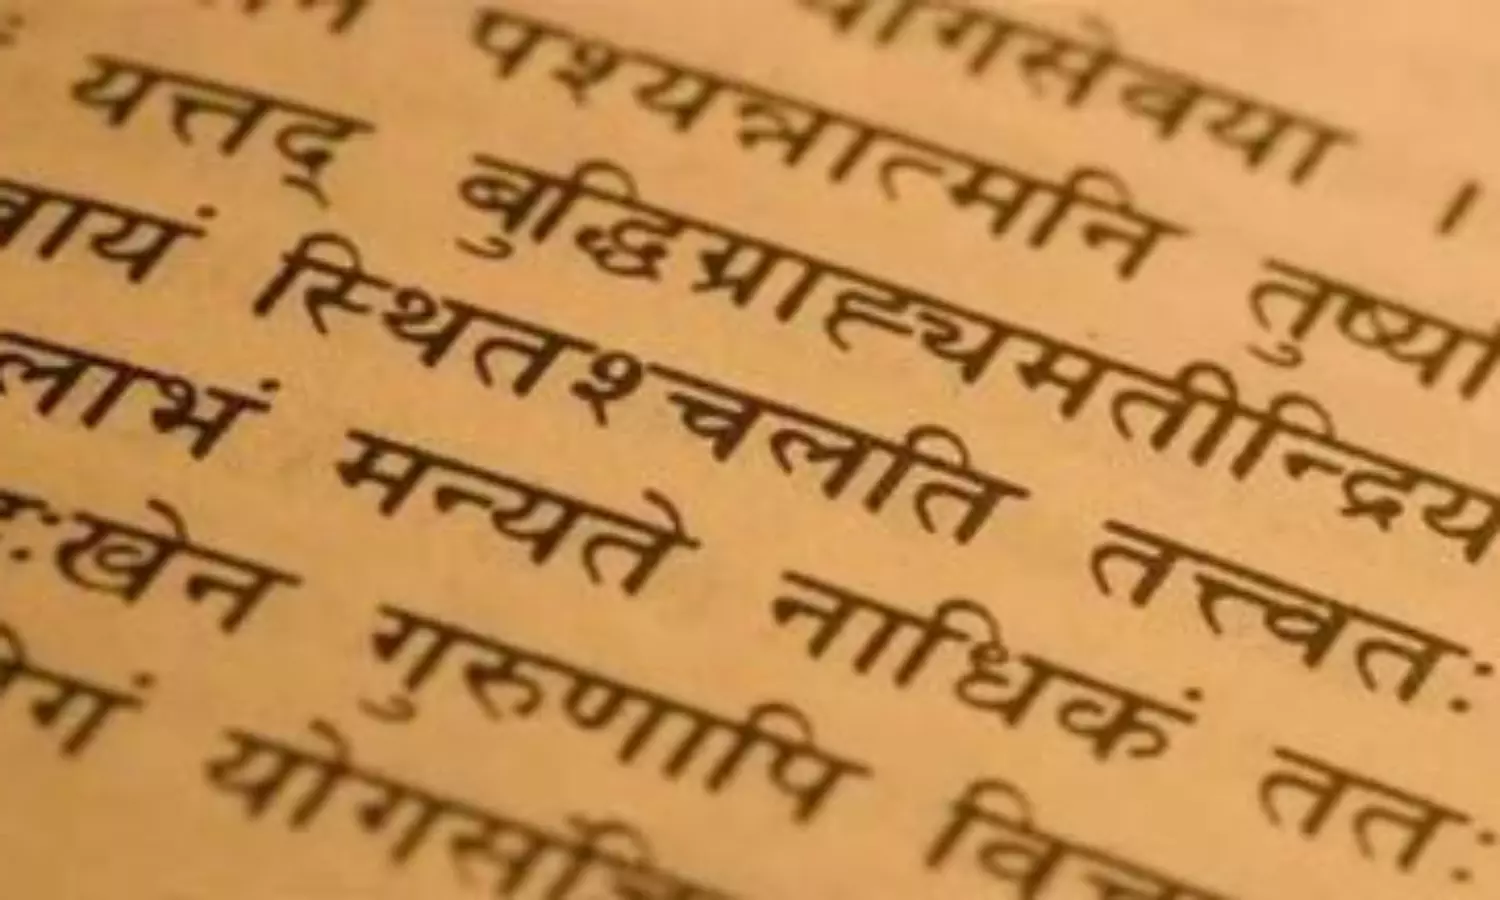 योगसेवया ।
पश्यन्नात्मनि तुष्य
यत्तद् बुद्धिग्राह्यमतीन्द्रिय
वायं स्थितश्चलति तत्त्वतः
लाभं मन्यते नाधिकं ततः
ःखेन गुरुणापि विचा
योगं योगसं